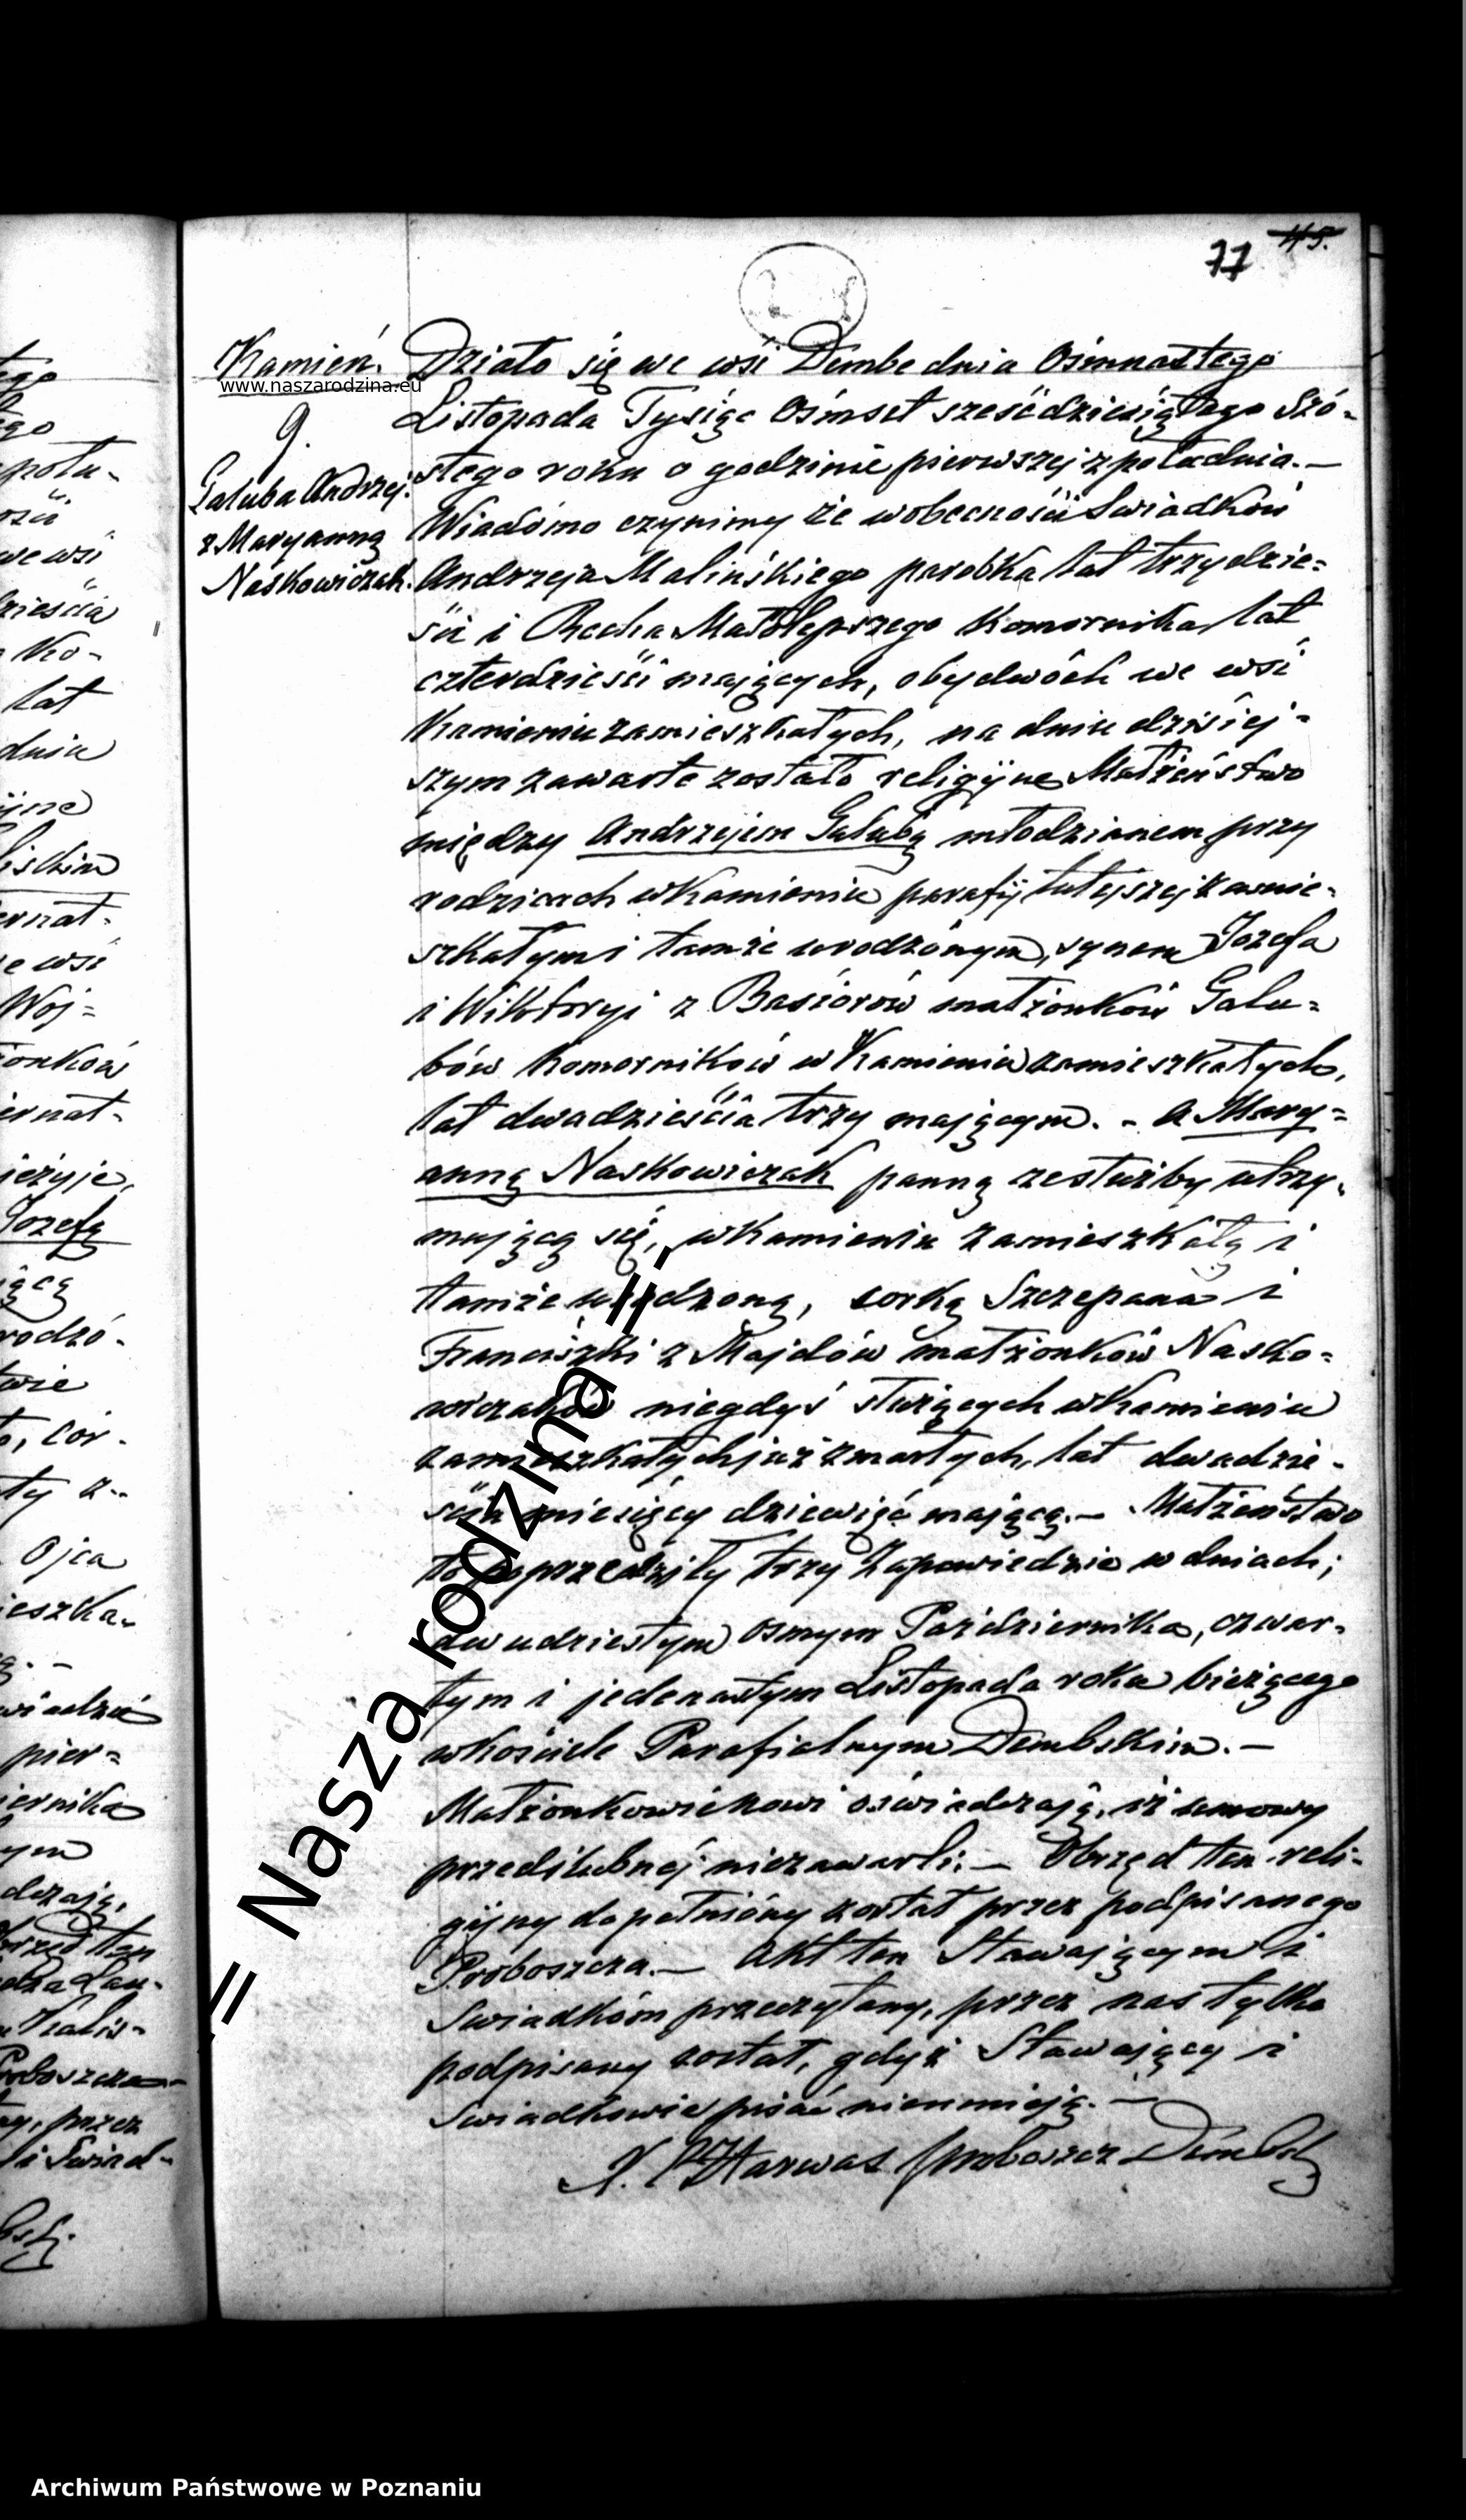 77 45.
Kamień.
www.naszarodzina.eu
9.
Galuba Andrzej
z Maryanną
Naskowiczak.
Działo się we wsi Dembe dnia Osimnastego
Listopada Tysiąc Osimset sześćdziesiątego Szó-
stego roku o godzinie pierwszej z południa. —
Wiadomo czynimy że wobecności Swiadków
Andrzeja Malińskiego parobka lat trzydzie-
ści i Rocha Małolepszego Komornika lat
czterdzieści mających, obydwóch we wsi
Kamieniu zamieszkałych, na dniu dzisiej-
szym zawarte zostało religijne Małżeństwo
między Andrzejem Galubą młodzianem przy
rodzicach w Kamieniu parafij tutejszej zamie-
szkałym i tamże urodzonym, synem Jozefa
i Wiktoryi z Basiorów małżonków Galu-
bów Komorników w Kamieniu zamieszkałych,
lat dwadzieścia trzy mającym. - a Mary-
anną Naskowiczak panną ze służby utrzy-
mującą się, w Kamieniu zamieszkałą i
tamże urodzoną, corką Szczepana i
Franciszki z Majdów małżonków Nasko-
wiczaków niegdyś służących w Kamieniu
zamieszkałych już zmarłych, lat dwadzie-
ścia miesięcy dziewięć mającą. — Małżeństwo
to poprzedziły trzy Zapowiedzie w dniach;
dwudziestym osmym Października, czwar-
tym i jedenastym Listopada roku bieżącego
w kościele Parafialnym Dembskim. —
Małżonkowie nowi oświadczają, iż umowy
przedślubnej niezawarli. — Obrzęd ten reli-
gijny dopełniony został przez podpisanego
Proboszcza. — Akt ten Stawającym i
Swiadkom przeczytany, przez nas tylko
podpisany został, gdyż Stawający i
Swiadkowie pisać nieumieją. —
X. Harwas Proboszcz Dembski
= Nasza rodzina =
Archiwum Państwowe w Poznaniu